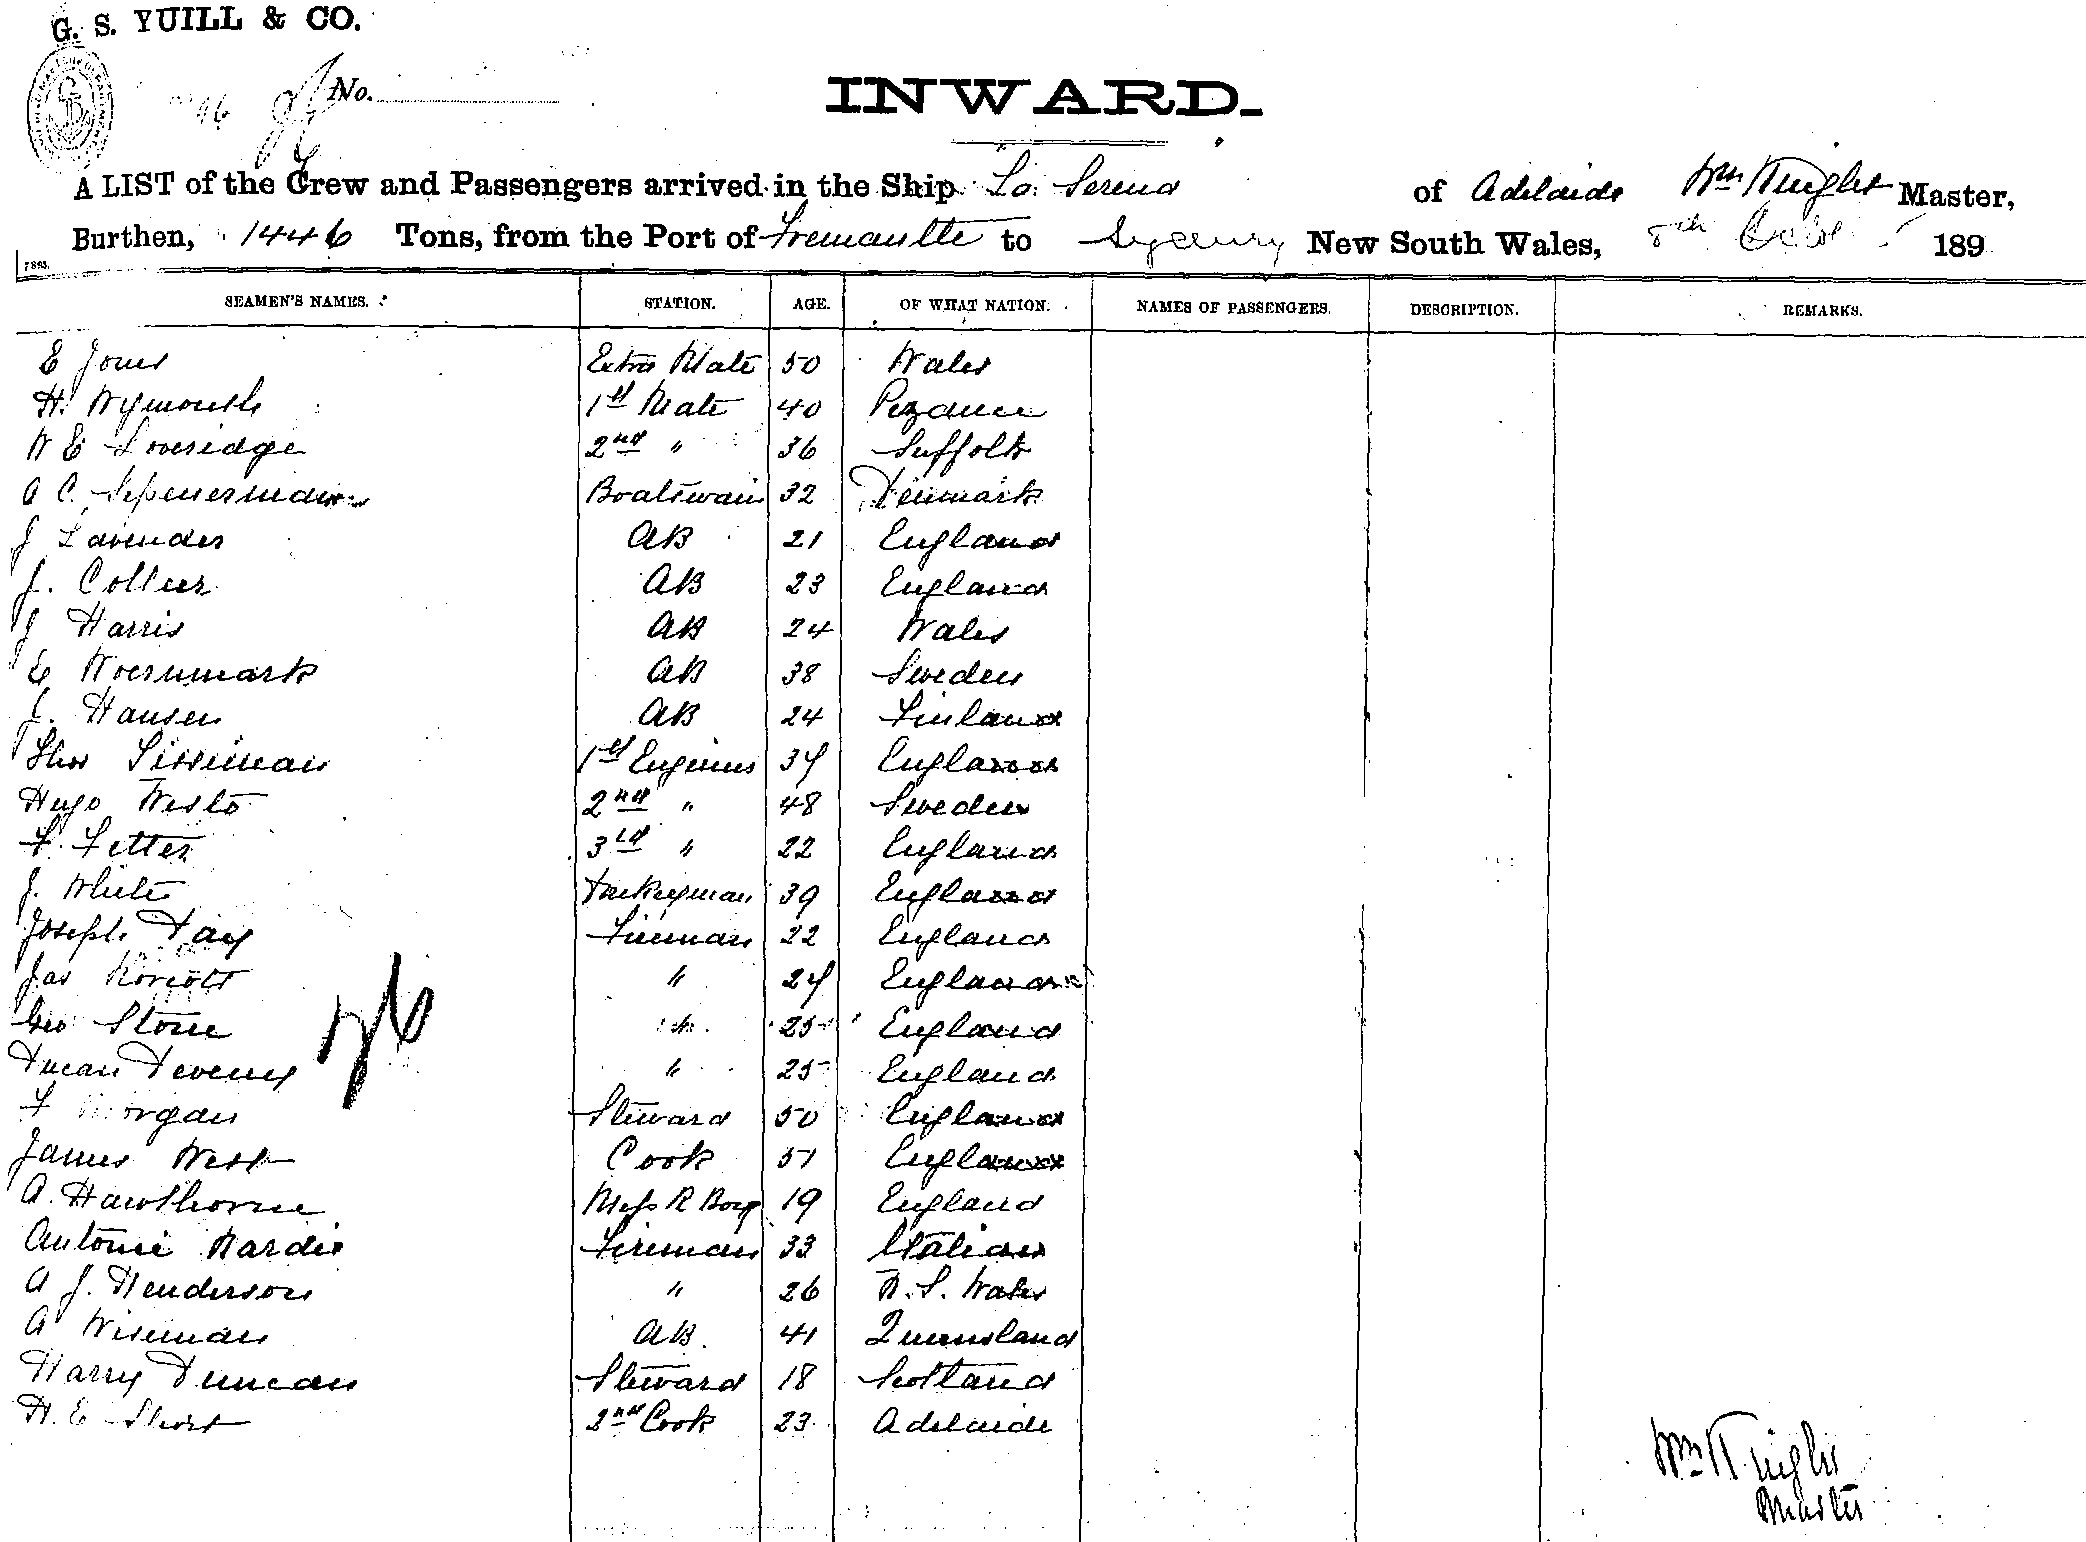 G. S. YUILL & CO.
No.
INWARD.
A LIST of the Crew and Passengers arrived in the Ship La Serena of Adelaide Wm Knight Master,
Burthen, 1446 Tons, from the Port of Fremantle to Sydney New South Wales, 189
SEAMEN'S NAMES. STATION. AGE. OF WHAT NATION. NAMES OF PASSENGERS. DESCRIPTION. REMARKS.
E Jones Extra Mate 50 Wales
H. Wymouth 1st Mate 40 Pezance
W E Loveridge 2nd " 36 Suffolk
A C. Boatswain 32 Denmark
J Lavender AB 21 England
J. Collier AB 23 England
J Harris AB 24 Wales
E Woernmark AB 38 Sweden
J. Hansen AB 24 Finland
Thos 1st Engineer 34 England
Hugo Westo 2nd " 48 Sweden
F. Fetter 3rd " 22 England
J. White Donkeyman 39 England
Joseph Day Fireman 22 England
Jas " 24 England
Geo Stone " 25 England
Duncan Deveney " 25 England
F Morgan Steward 50 England
James West Cook 51 England
A. Hawthorne Mess R Boy 19 England
Antonie Nardie Fireman 33 Italian
A J. Henderson " 26 N. S. Wales
A Wiseman AB. 41 Queensland
Harry Duncan Steward 18 Scotland
H. E Short 2nd Cook 23 Adelaide
Wm Knight
Master